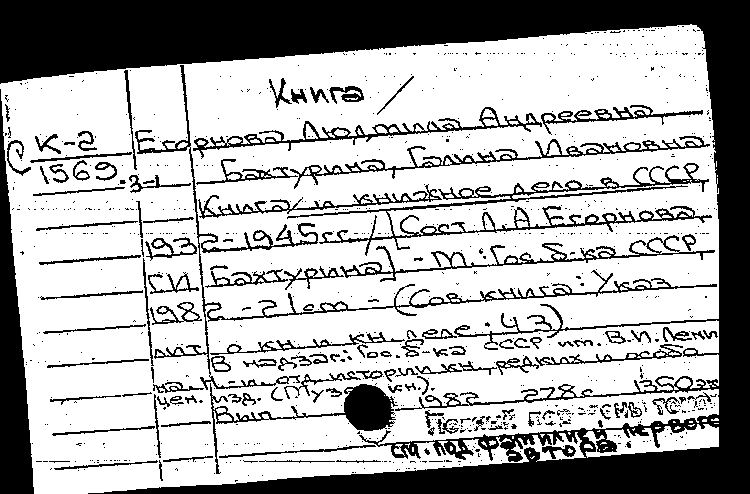 Книга /
К-2 Егорнова, Людмила Андреевна,
1569.3-1 Бахтурина, Галина Ивановна
Книга и книжное дело в СССР,
1932-1945гг. / [Сост Л.А. Егорнова,
Г.И. Бахтурина] - М.: Гос. б-ка СССР,
1982 - 21 cm - (Сов. книга: Указ
лит. о кн. и кн. деле; Ч 3)
В надзаг.: Гос. б-ка СССР им. В.И. Лени
на. Н.-и. отд. истории кн., редких и особо
цен. изд. (Музей кн.).
Вып 1. 1982 278с 1350экз
Полный
см. под фамилией первого
автора.